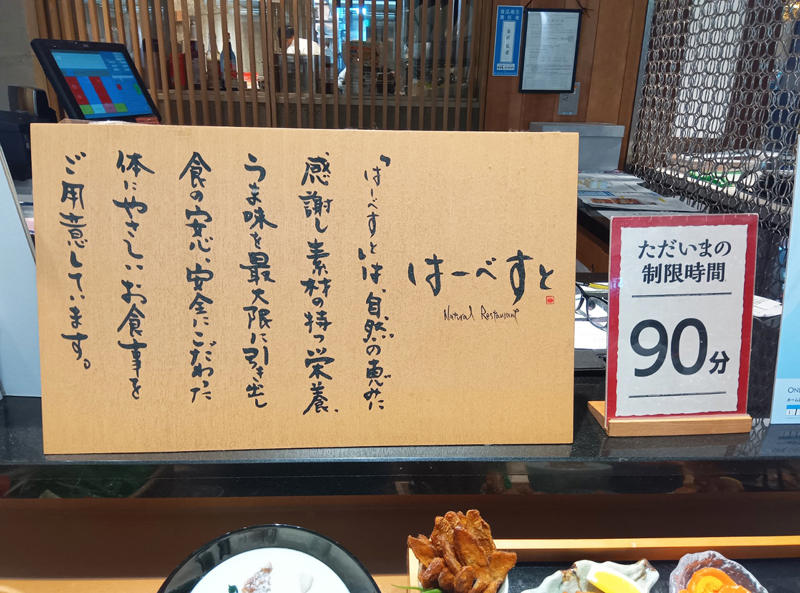 はーべすと
Natural Restaurant
「はーべすと」は、自然の恵みに
感謝し素材の持つ栄養、
うま味を最大限に引き出し
食の安心、安全にこだわった
体にやさしいお食事を
ご用意しています。
ただいまの
制限時間
90分